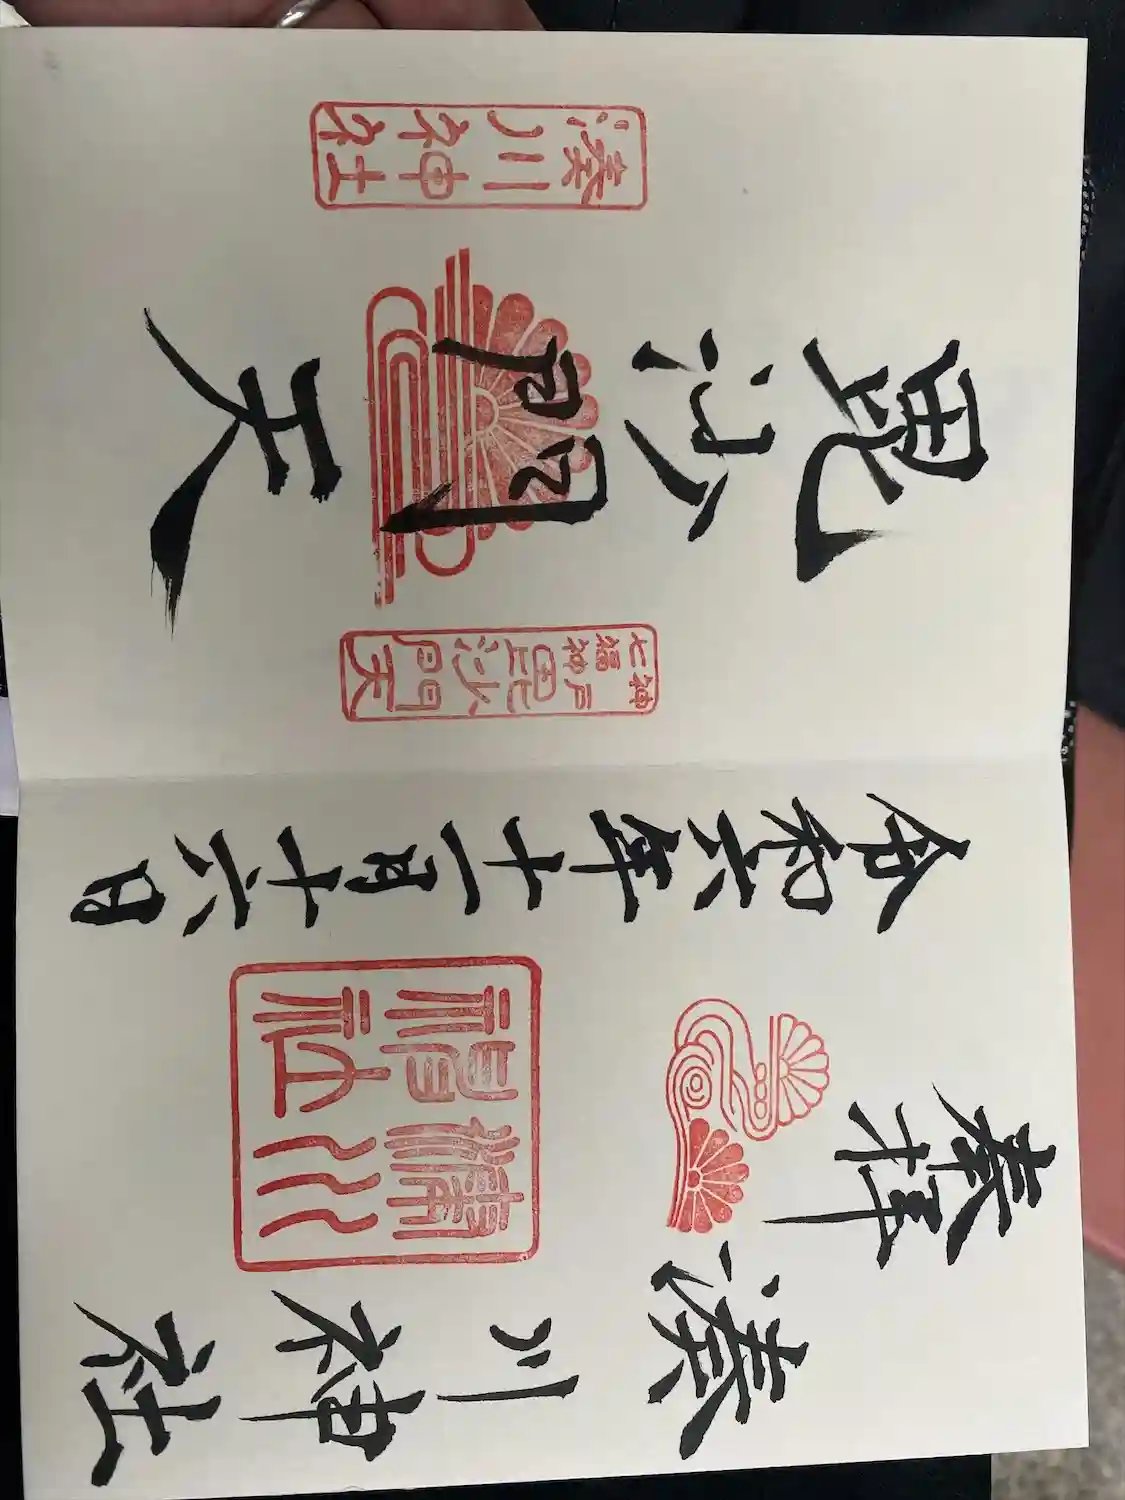 奉拝
湊川神社
湊川
神社
令和六年十一月十六日
神戸
七福神
毘沙門天
毘沙門天
湊川神社